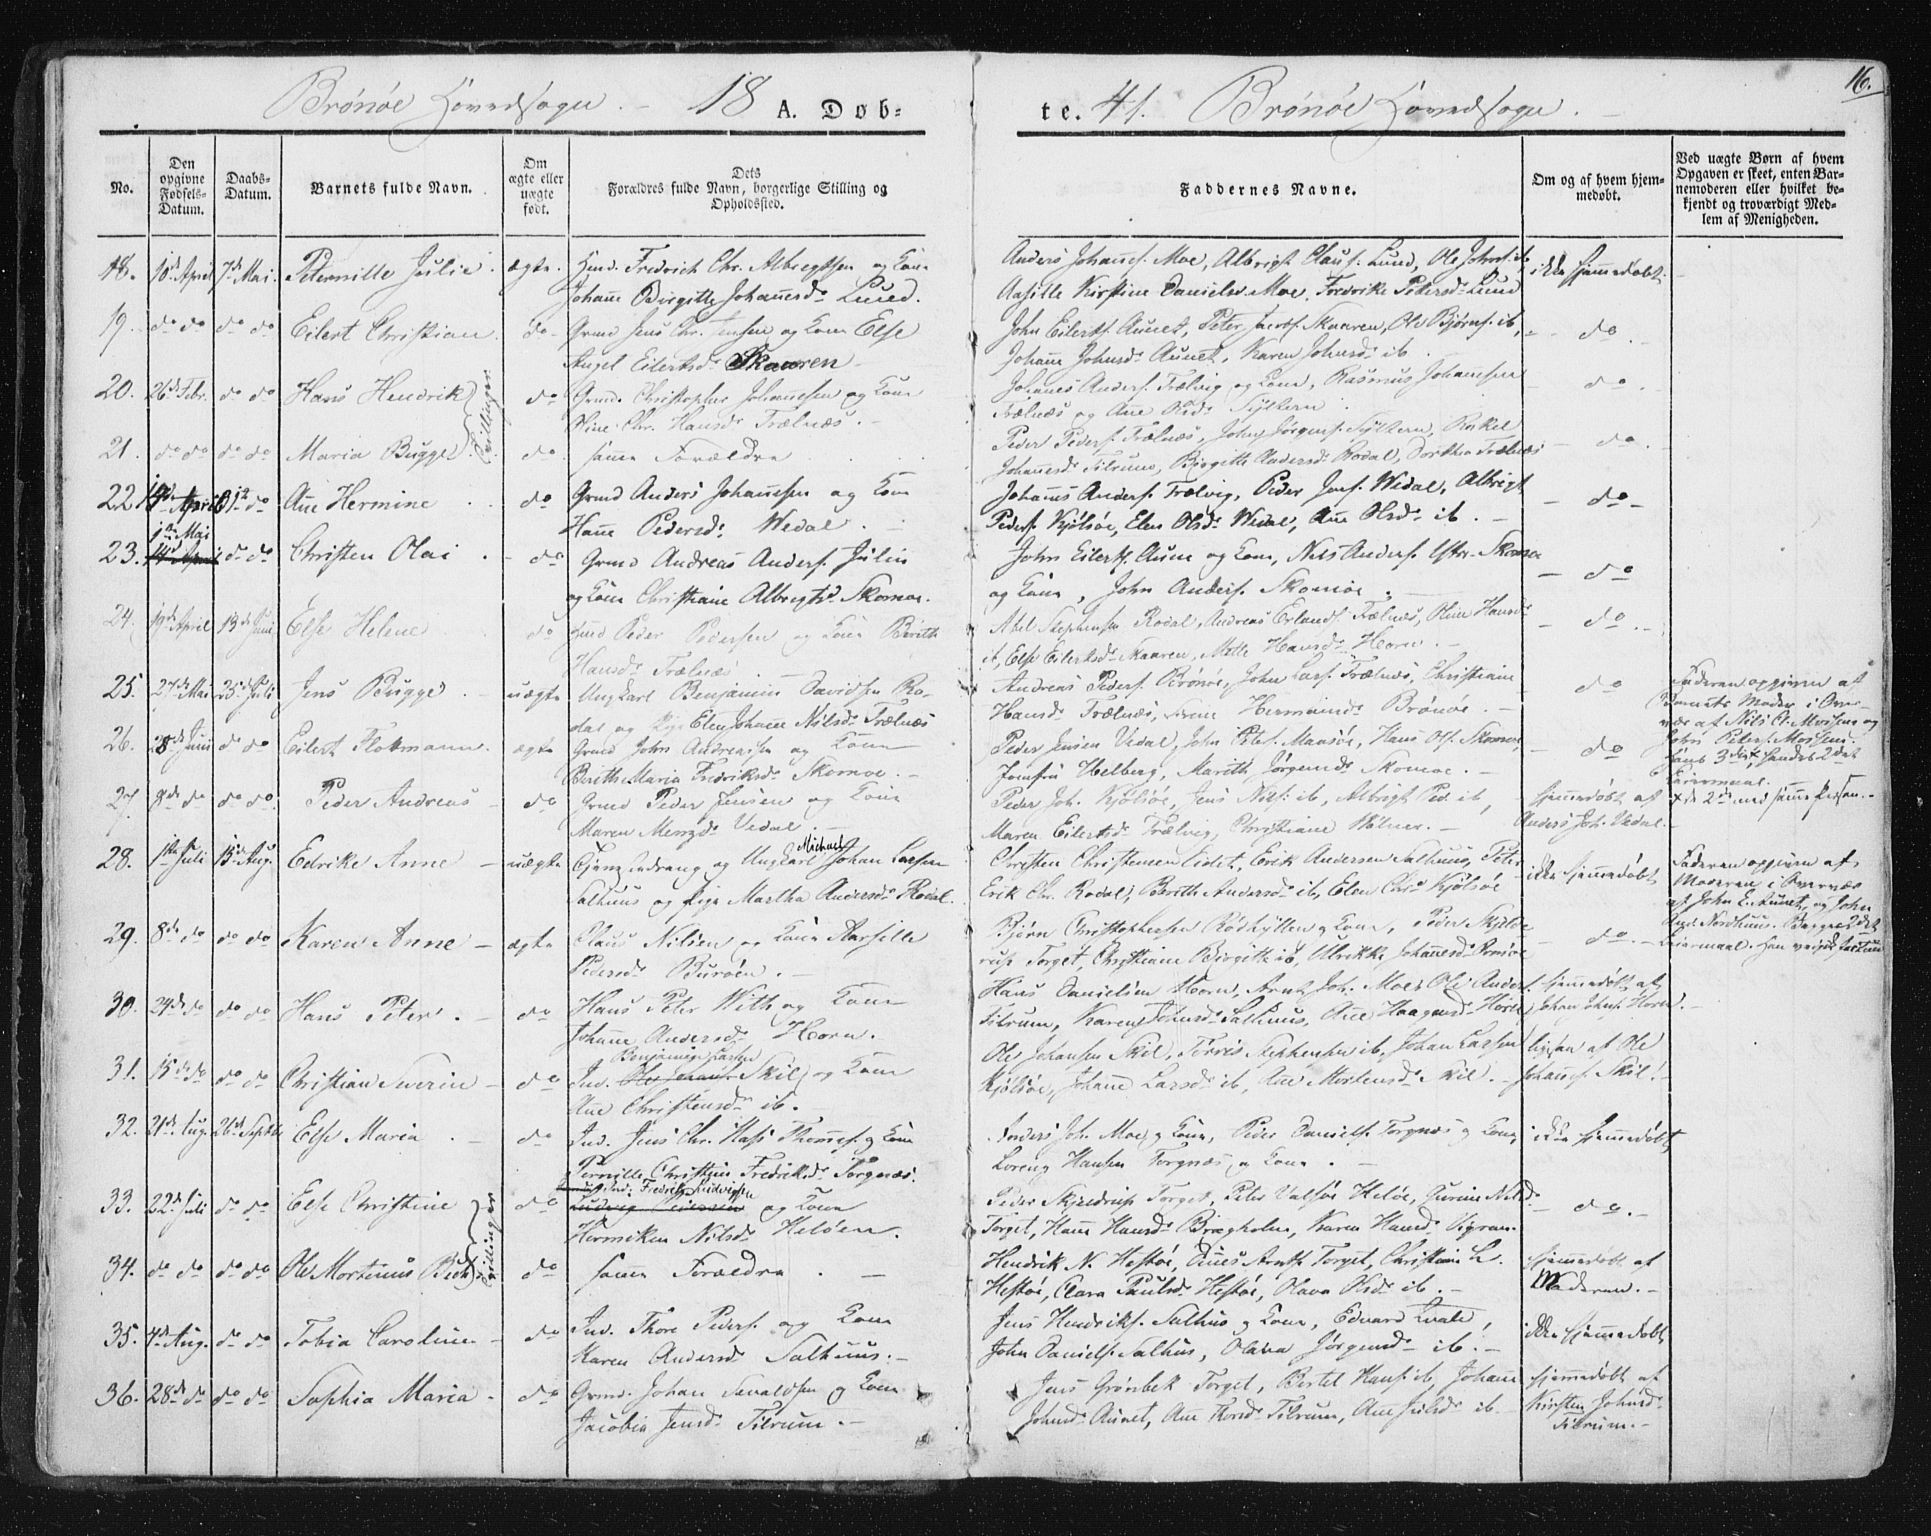 Brønøe Hovedsogn. - 18 A. Døb-
te. 41. Brønøe Hovedsogn. -
16.
No.
Den opgivne Fødsels-Datum.
Daabs-Datum.
Barnets fulde Navn.
Om ægte eller uægte født.
Dets Forældres fulde Navn, borgerlige Stilling og Opholdssted.
Faddernes Navne.
Om og af hvem hjem-medøbt.
Ved uægte Børn af hvem Opgaven er skeet, enten Bar-nemoderen eller hvilket be-kjendt og troværdigt Med-lem af Menigheden.
18. 10de April 7de Mai. Peternille Julie. ægte. Huusm. Fredrich Chr. Albregtsen og Kone
Johanne Birgitte Johannesd. Lund.
Anders Johannes. Moe, Albrigt Claus. Lund, Ole Johns. ib,
Aasille Kirstine Danielsd. Moe, Fredrike Pedersd. Lund
ikke hjemmedøbt.
19. do do do do Eilert Christian. do - Grmd Jens Chr. Jensen og Kone Else
Angel Eilertsd. Skaaren -
John Eilerts. Aunet, Peter Jacobs. Skaaren, Ole Bjørns. ib,
Johanne Johnsd. Aunet, Karen Johnsd. ib.
- do -
20. 26de Febr. do do Hans Hendrik do Grmd. Christopher Johannesen og Kone
Oline Chr. Hansd. Trælnæs. -
Tvillinger
Johannes Anders. Trælvig og Kone, Rasmus Johannesen
Trælnæs og Ane Olsd. Sylteren.
- do -
21. do do do do Maria Bugge do. samme Forældre
Peder Peders. Trælnæs, John Jørgens. Sylteren, Rakel
Johannesd. Tilrum, Birgitte Andersd. Rodal, Dorthea Trælnæs
- do -
22. 14de April 31te do Ane Hermine do Grmd Anders Johannesen og Kone
Hanne Pedersd. Wedal. -
Johannes Anders. Trælvig, Peder Jons. Wedal, Albrigt
Peders. Kjølsøe, Elen Olsd. Wedal, Ane Olsd. ib. -
- do -
1de Mai
23. do do Christen Olai. - do Grmd Andreas Anders. Julin
og Kone Christiane Albregtsd. Skomoe.
John Eilerts. Aune og Kone, Nils Anders. Skomoe
og Kone, John Anders. Skomoe.
- do
24. 19de April 13de Juni Else Helene do Huusmd Peder Pedersen og Kone Berith
Hansd. Trælnæs. -
Abel Stephensen Rodal, Andreas Erlands. Trælnæs, Oline Hansd.
ib, Else Eilertsd. Skaaren, Mette Hansd. Horn. -
- do -
25. 27de Mai 25de Juli Jens Bugge. - uægte Ungkarl Benjamin Davidsen Ro-
dal og Pige Elen Johanne Nilsd. Trælnæs
Andreas Peders. Brønøe, John Lars. Trælnæs, Christiane
Hansd. Trælnæs, Hermansd. Brønøe. -
do
Faderen opgiven af
Barnets Moder i Over-
vær af Nils C. Morsens og
John Peter Mossens.
Hans 3die x hendes 2det
Leiermaal.
x de 2de med samme Person. -
26. 28de Juni do do Eilert Plokmann. ægte Grmd John Andreassen og Kone
Berith Maria Fredriksd. Skomoe. -
Peder Jensen Vedal, John Peters. Mansøe, Hans Ols. Skomoe,
Jomfru Helberg, Marith Jørgensd. Skomoe. -
- do
27. 9de do do do. Peder Andreas - do Grmd Peder Jensen og Kone
Maren Menzsd. Vedal. -
Peder Joh. Kjølsøe, Jens Nils. ib, Albrigt Ped. ib,
Maren Eilertsd. Trælvig, Christiane Holmer. -
hjemmedøbt af
Anders Joh. Vedal. -
28. 1ste Juli 15de Aug. Edrike Anne - uægte og Ungkarl Michael Johan Larsen
Salhuus og Pige Martha Andersd. Rodal.
Christen Christensen Eidet, Erik Andersen Salhuus, Peter
Erik Chr. Rodal, Berith Andersd. ib, Elen Chrd. Kjølsøe
ikke hjemmedøbt
Faderen opgiven af
Moderen i Overvær
af John E. Aunet, og John
And. Nordhuus. Begges 2det
Leiermaal.
29. 8de do do do Karen Anne - ægte Claus Nilsen og Kone Aarsille
Pedersd. Burøen. -
Bjørn Christophersen Rødhytten og Kone, Peder Skjelde
rup Torget, Christiane Birgitte ib, Ulrikke Johannesd. Brønøe
- do. -
30. 24de do do do Hans Peter. - do Hans Peter With og Kone
Johanne Andersd. Horn.
Hans Danielsen Horn, Arnt Joh. Moe, Ole Anders.
Tilrum, Karen Johnsd. Salhuus, Ane Haagensd. Horn
hjemmedøbt af
Johan Johns. Horn. -
31. 15de do do do Christian Severin - do Ind. Benjamin Larsen Skil og Kone
Ane Christensd. ib. -
Ole Johansen Skil, Tørris Stephensen ib, Johan Larsen
Kjølsøe, Johanne Larsd. ib, Ane Mortensd. Skil. -
ligesaa af Ole
Johannes. Skil. -
32. 21de Aug. 26de Septbr Else Maria. - do Ind. Jens Chr. Hass Thomes. og Kone
Pernille Christine Fredriksd. Torgnæs.
Anders Joh. Moe og Kone, Peder Daniels. Torgnæs og Kone,
Lorens Hansen Torgnæs og Kone. -
ikke hjemmedøbt
33. 22de Juli do do Else Christine do Fredrik Ludvigsen
og Kone
Hermiken Nilsd. Heløen.
Tvillinger
Peder Skjeldrup Torget, Peter Valsøe Heløe, Gurine Nilsd.
Torget, Hanne Hansd. Bjergholm, Karen Hansd. Vigran.
- do. -
34. do do do do Ole Mortinus Bech do samme Forældre. -
Hendrik N. Hestøe, Arnts. Torget, Christiane L.
Hestøe, Clara Paulsd. Hestøe, Olava Olsd. ib. -
hjemmedøbt af
Moderen. -
35. 4de Aug. do do Tobia Caroline - do Ind. Thore Peders. og Kone
Karen Andersd. Salhuus. -
Jens Hendriks. Salhus og Kone, Edvard Qvale,
John Daniels. Salhus, Olava Jørgensd. ib. -
ikke hjemmedøbt
36. 28de do do do Sophia Maria - do Grmd. Johan Sevaldsen og Kone
Jacobia Jensd. Tilrum. -
Jens Grønbek Torget, Bertel Hans. ib, Johanne
Johnsd. Aunet, Ane Tilrum, Ane Juhlsd. ib.
hjemmedøbt af
Kirsten Johnsd.
Tilrum. -